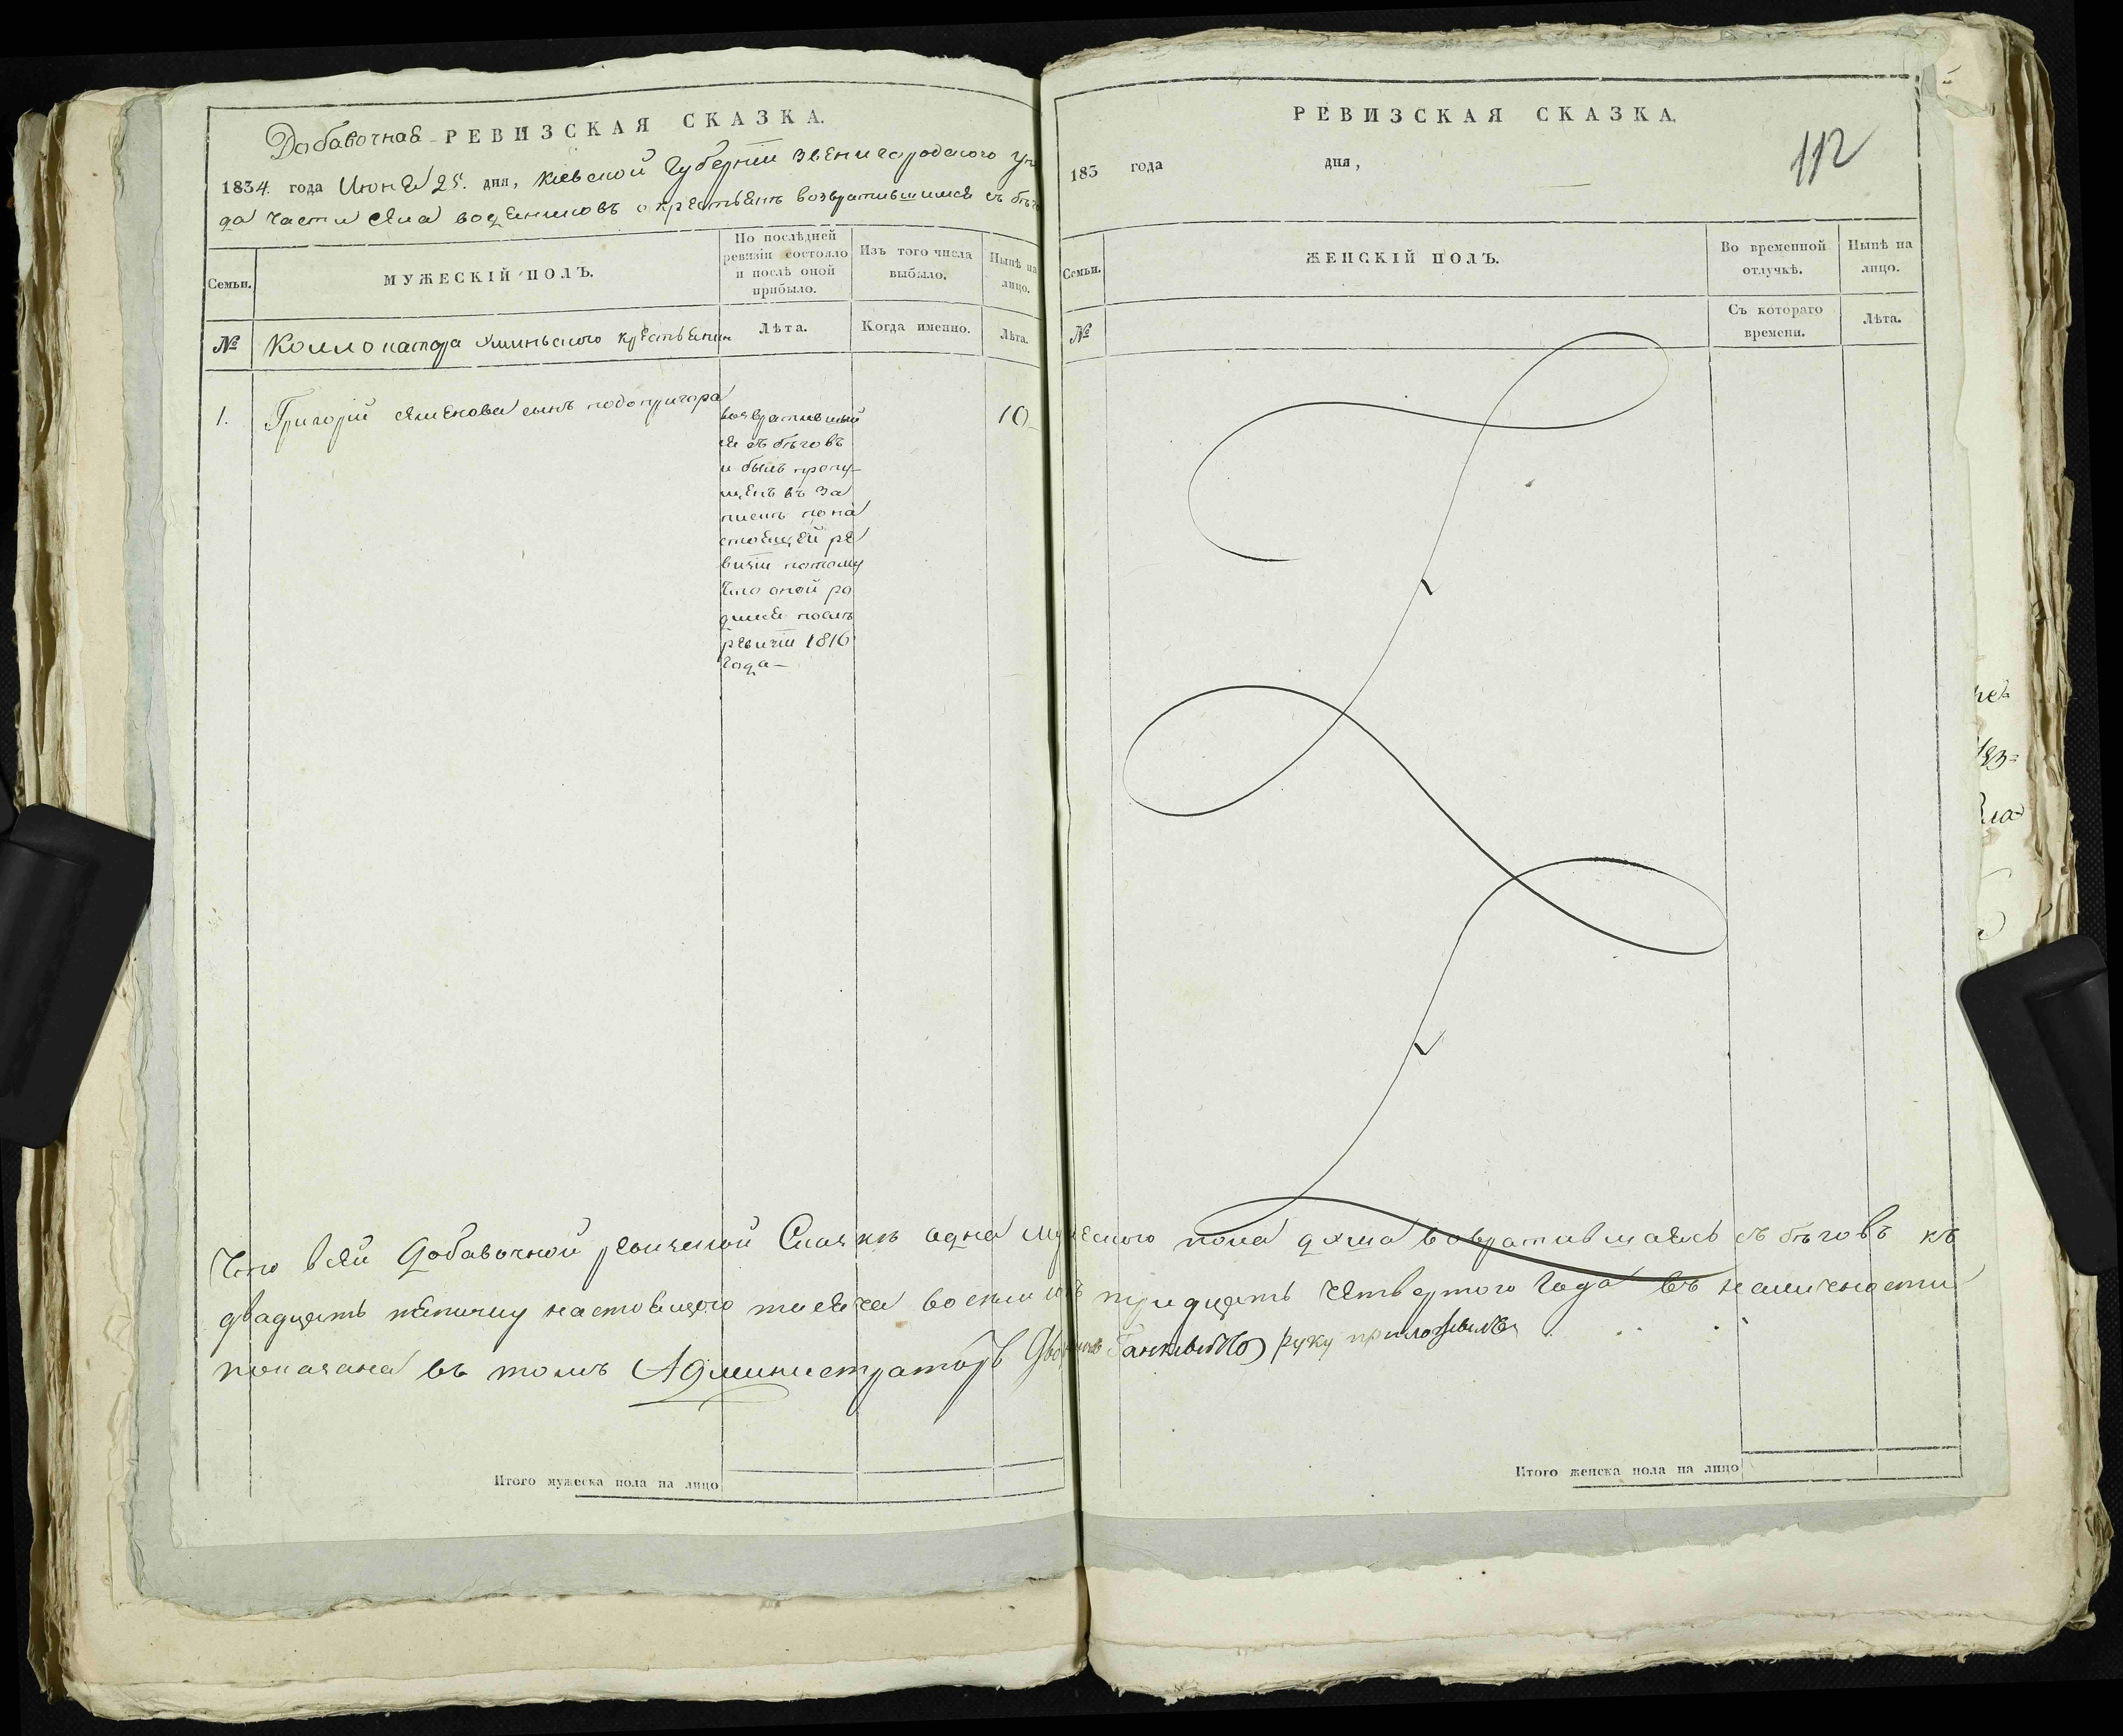 Добавочная РЕВИЗСКАЯ СКАЗКА.
1834. года Июня 25. дня, Киевской Губерніи Звенигородского уѣз
да части села водениковъ о крестьянѣ возвратившимся съ бѣго
Семьи.
МУЖЕСКІЙ ПОЛЪ.
По послѣдней
ревизіи состояло
и послѣ оной
прибыло.
Изъ того числа
выбыло.
Нынѣ на
лицо.
№
крестьянин
Лѣта.
Когда именно.
Лѣта.
1.
Григорій Семеновъ сынъ подопригора
10
возвратившый
ся съ бѣговъ
и былъ пропу-
щенъ въ за
пискѣ по на
стоящей ре
визіи потому
что оной ро
дился послѣ
ревизіи 1816
года-
РЕВИЗСКАЯ СКАЗКА.
183 года дня,
112
Семьи.
ЖЕНСКІЙ ПОЛЪ.
Во временной
отлучкѣ.
Нынѣ на
лицо.
№
Съ котораго
времени.
Лѣта.
Что всей Добавочной ревизской Сказкѣ одна мужеского пола душа возвратившаясь съ бѣговъ къ
двадцать пятому настоящого тысяча восемь сотъ тридцать Четвертого Года въ наличности
показана въ томъ Администраторъ руку приложилъ
Итого мужеска пола на лицо
Итого женска пола на лицо